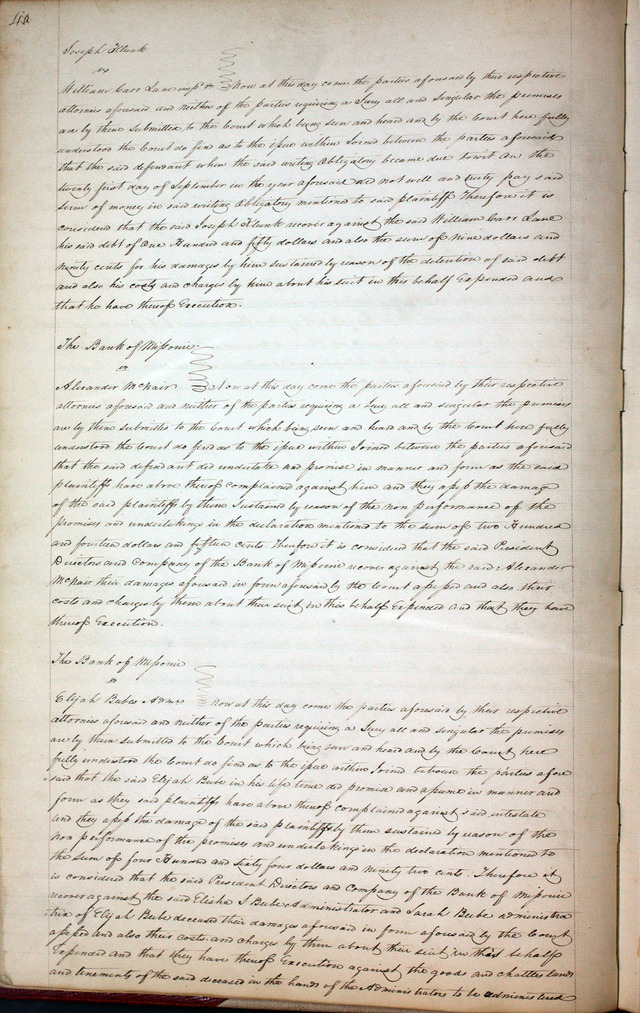 Joseph Klunk
vs
William Carr Lane Now at this day come the parties aforesaid by their respective
attornies aforesaid and neither of the parties requiring a Jury all and singular the premises
are by them submitted to the Court which being seen and heard and by the Court here fully
understood the Court do find as to the ipue within Joined between the parties aforesaid
that the said defendant when the said writing Obligatory became due towit on the
twenty first day of September in the year aforesaid did not well and truly pay said
sum of money in said writing Obligatory mentioned to said plaintiff Therefore it is
considered that the said Joseph Klunk recover against the said William Carr Lane
his said debt of One Hundred and fifty dollars and also the sum of Nine dollars and
Ninety cents for his damages by him sustained by reason of the detention of said debt
and also his costs and charges by him about his suit in this behalf Expended and
that he have thereof Execution.
The Bank of Mipouri
vs
Alexander McNair Now at this day come the parties aforesaid by their respective
attornies aforesaid and neither of the parties requiring a Jury all and singular the premises
are by them submitted to the Court which being seen and heard and by the Court here fully
understood the Court do find as to the ipue within Joined between the parties aforesaid
that the said defendant did undertake and promise in manner and form as the said
plaintiffs have above thereof complained against him and they apeſs the damage
of the said plaintiffs by them Sustained by reason of the non performance of the
promises and undertakings in the declaration mentioned to the sum of two Hundred
and fourteen dollars and fifteen cents Therefore it is considered that the said President
Directors and Company of the Bank of Mipouri recover against the said Alexander
McNair their damages aforesaid in form aforesaid by the Court apeſsed and also their
costs and charges by them about their suit in this behalf Expended and that they have
thereof Execution.
The Bank of Mipouri
vs
Elijah Bebes Admrs Now at this day come the parties aforesaid by their respective
attornies aforesaid and neither of the parties requiring a Jury all and singular the premises
are by them submitted to the Court which being seen and heard and by the Court here
fully understood the Court do find as to the ipue within Joined between the parties afore
said that the said Elijah Bebe in his life time did promise and apume in manner and
form as they said plaintiffs have above thereof complained against said intestate
and they apeſs the damage of the said plaintiffs by them sustained by reason of the
Non performance of the promises and undertakings in the declaration mentioned to
the sum of four Hundred and Sixty four dollars and ninety two cents. Therefore it
is considered that the said President Directors and Company of the Bank of Mipouri
recover against the said Elisha S Bebe Administrator and Sarah Bebe administra
trix of Elijah Bebe deceased their damages aforesaid in form aforesaid by the Court
apeſsed and also their costs and charges by them about their suit in this behalf
Expended and that they have thereof Execution against the goods and chattles lands
and tenements of the said deceased in the hands of the Administrators to be administered